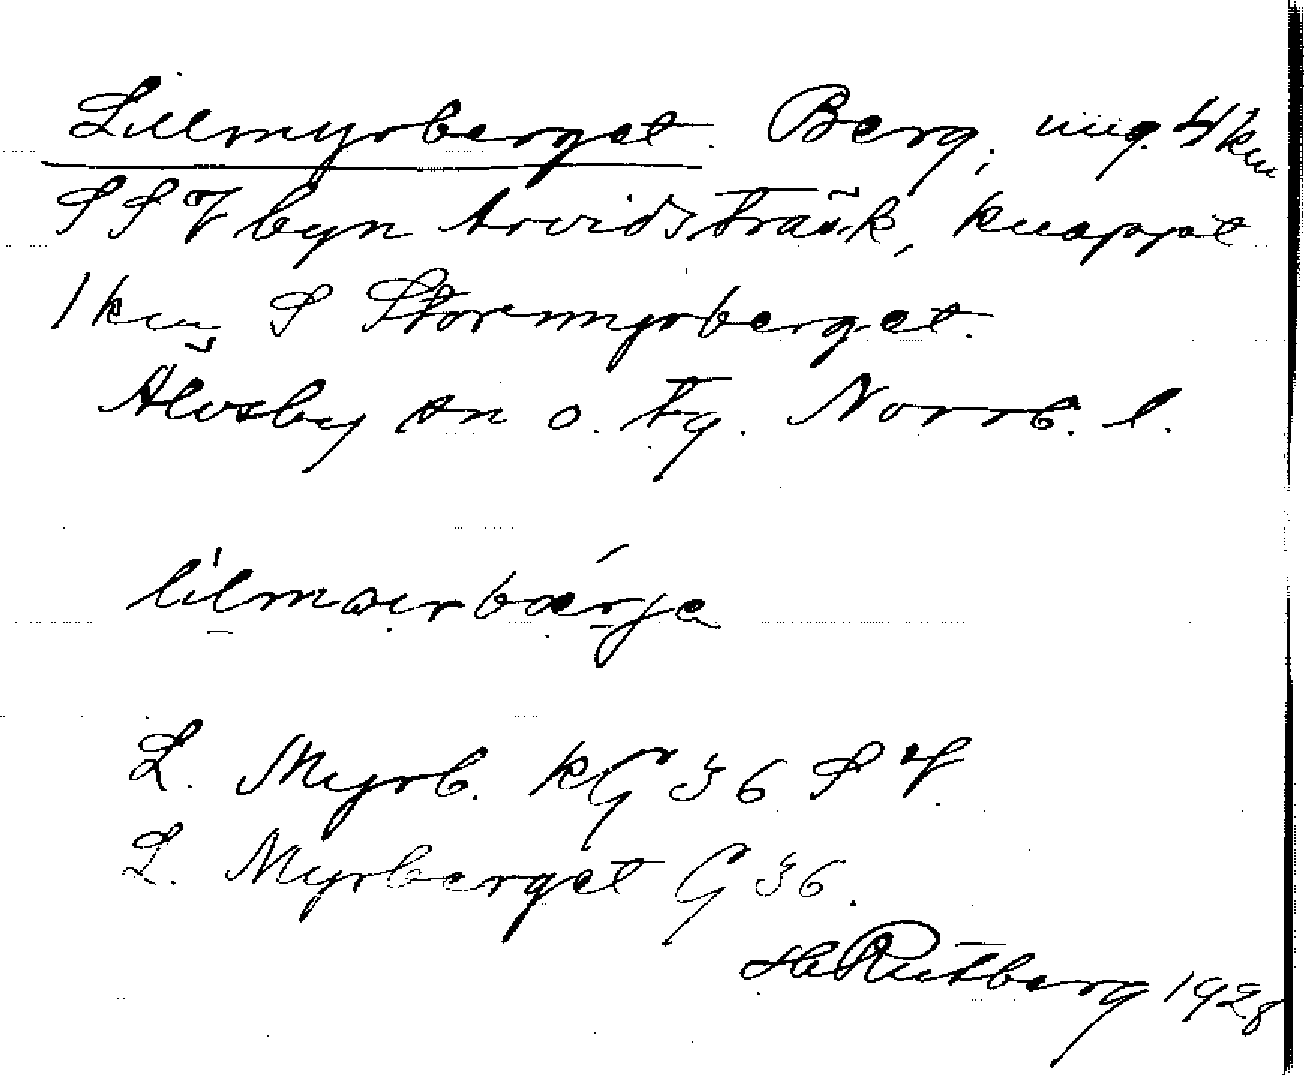 Lillmyrberget. Berg, ung. 4 km
SSV byn Arvidsträsk, knappt
1 km S Stormyrberget.
Älvsby sn o. tg. Norrb. l.
L. Myrb. kG 36 SV.
L. Myrberget G 36.
H Rutberg 1928